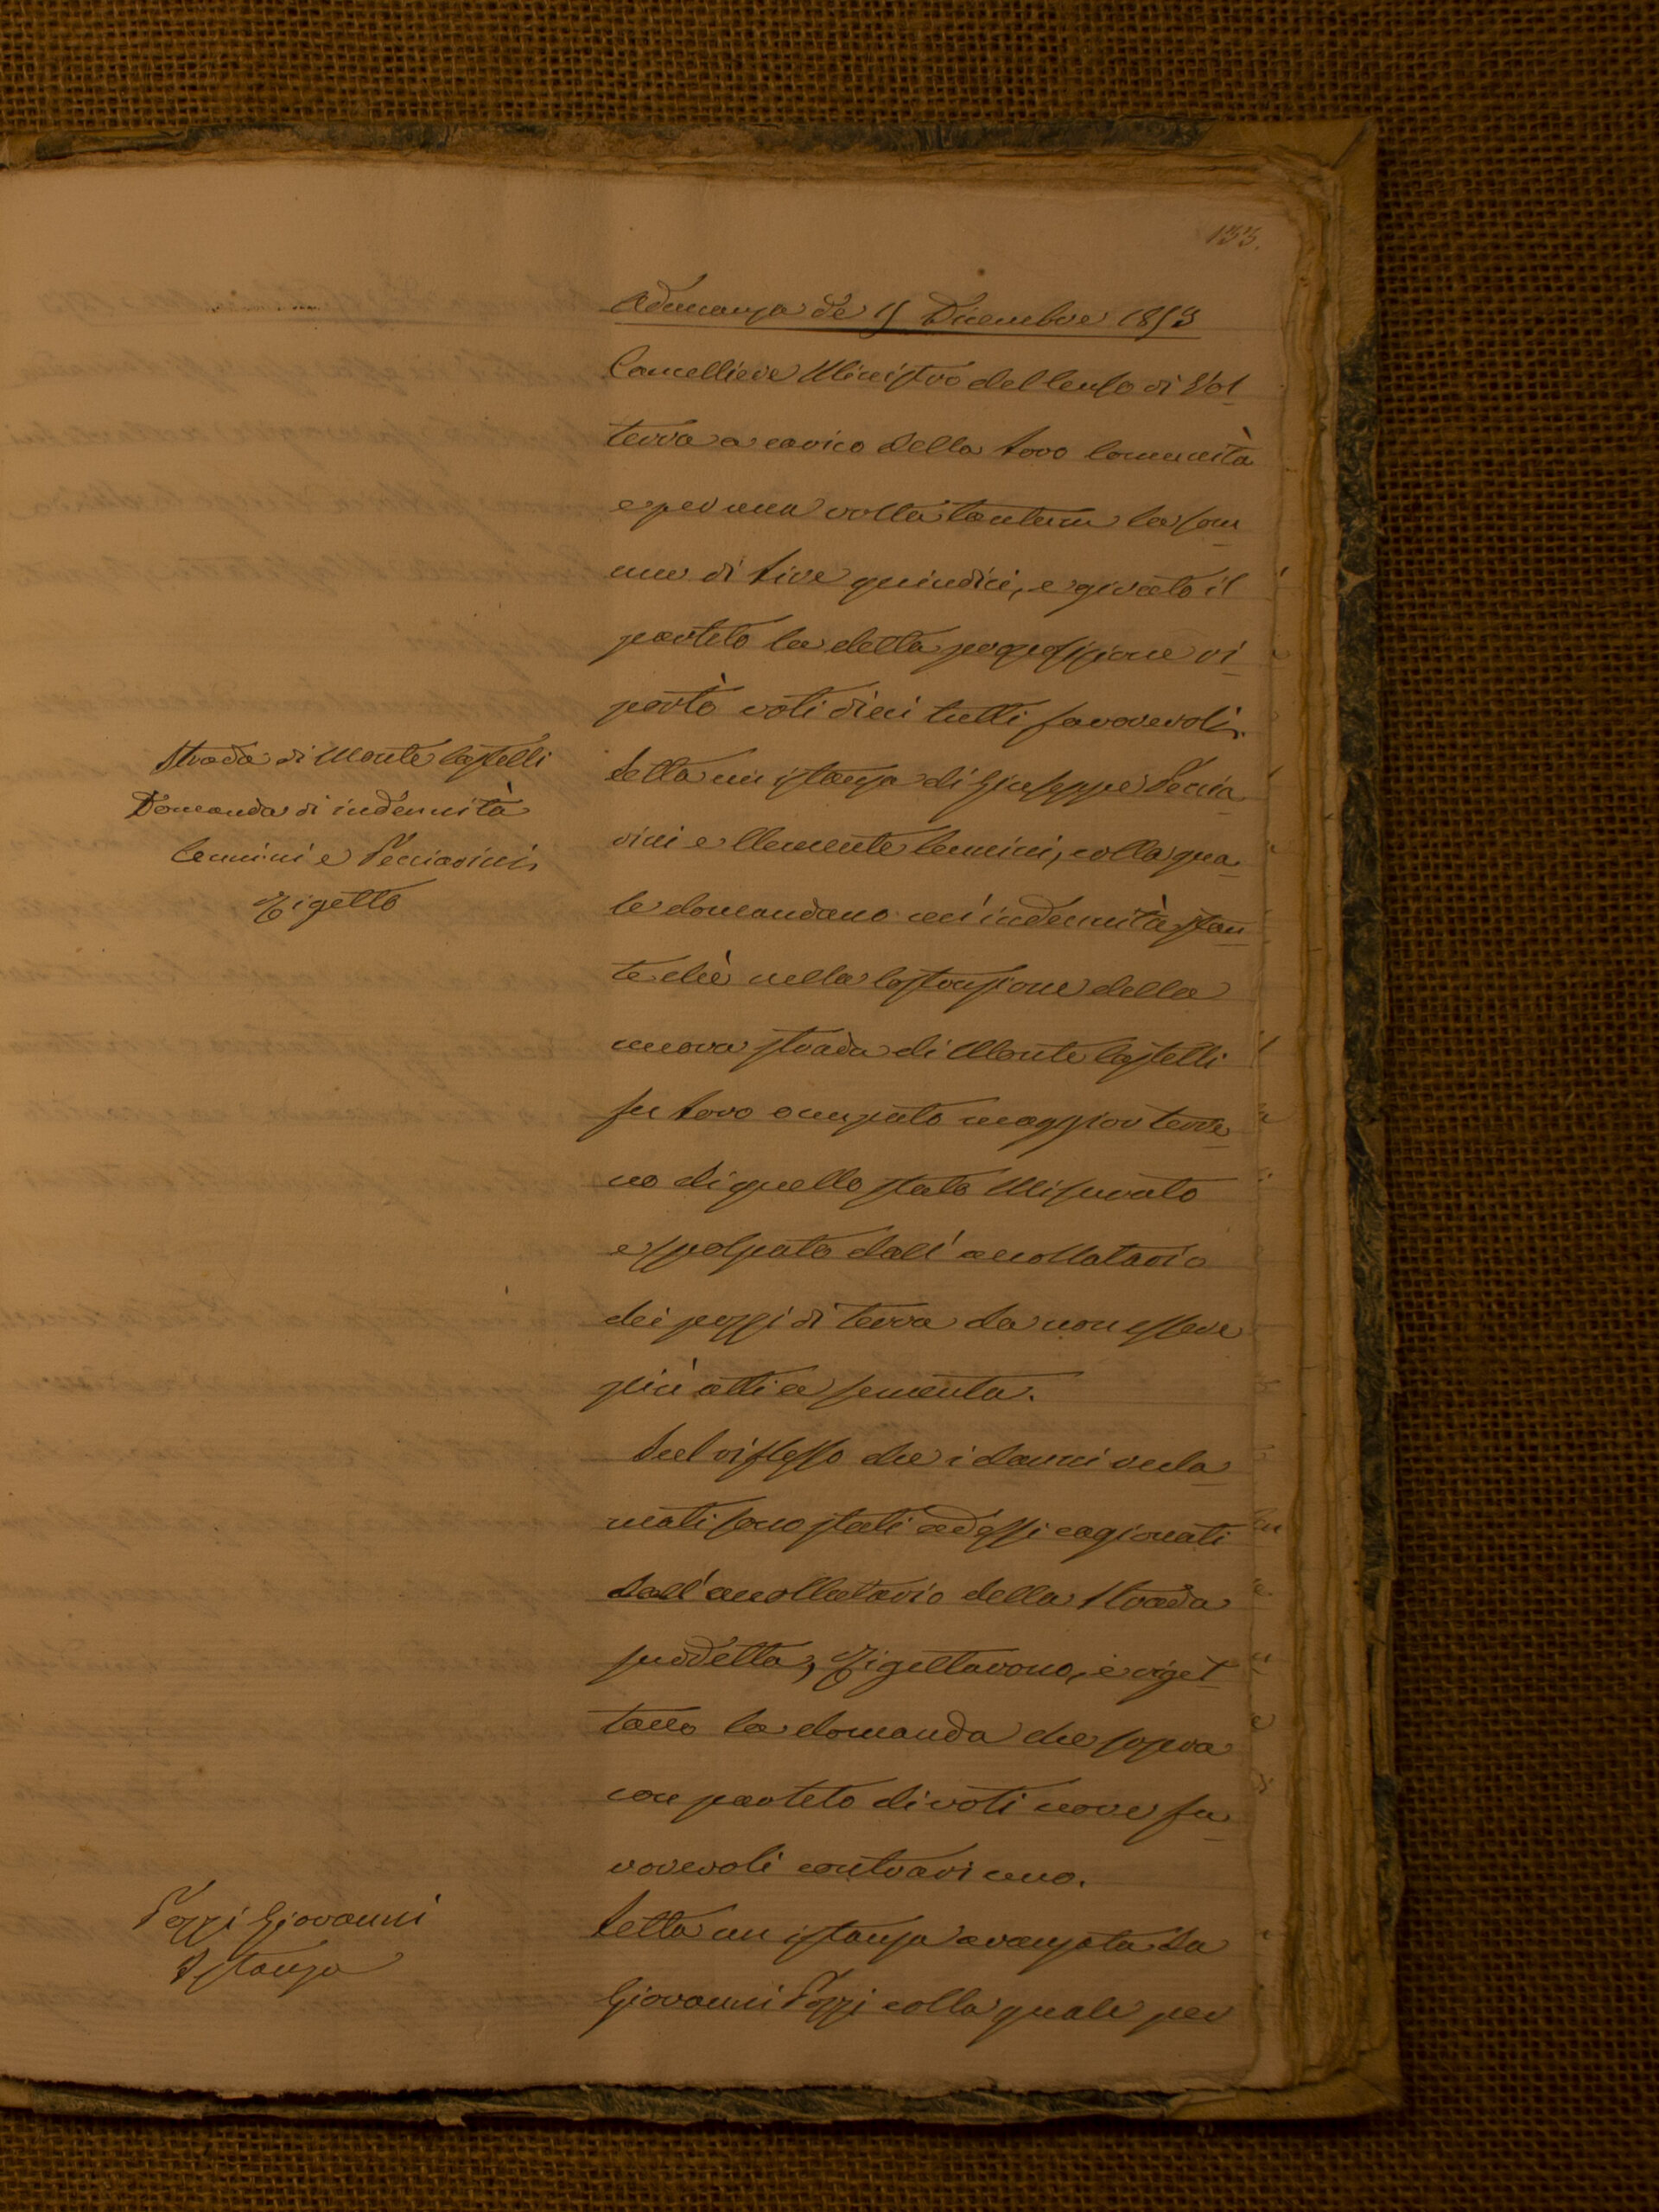 133.
Adunanza de 15 Dicembre 1853
Cancelliere Ministro del Censo di Vol
terra a carico della loro Comunità
e per una volta tantum la som
ma di Lire quindici, e girato il
partito la detta proposizione ri
portò voti dieci tutti favorevoli.
Strada di Monte Castelli
Domanda di indennità
Cennini e Pecciarini,
Rigetto
Letta un istanza di Giuseppe Peccia
rini e Clemente Cennini, colla qua
le domandano un'indennità stan
te che nella costruzione della
nuova strada di Monte Castelli
fu loro occupato maggior terre
no di quello stato Misurato
e spolpato dall'accollatario
dei pezzi di terra da non essere
più atti a sementa.
Sul riflesso che i danni recla
mati sono stati ad essi cagionati
dall'accollatario della Strada
suddetta, Rigettarono, e riget
tano la domanda che sopra
con partito di voti nove fa
vorevoli contrari uno.
Pozzi Giovanni
Istanza
Letta un istanza avanzata da
Giovanni Pozzi colla quale per